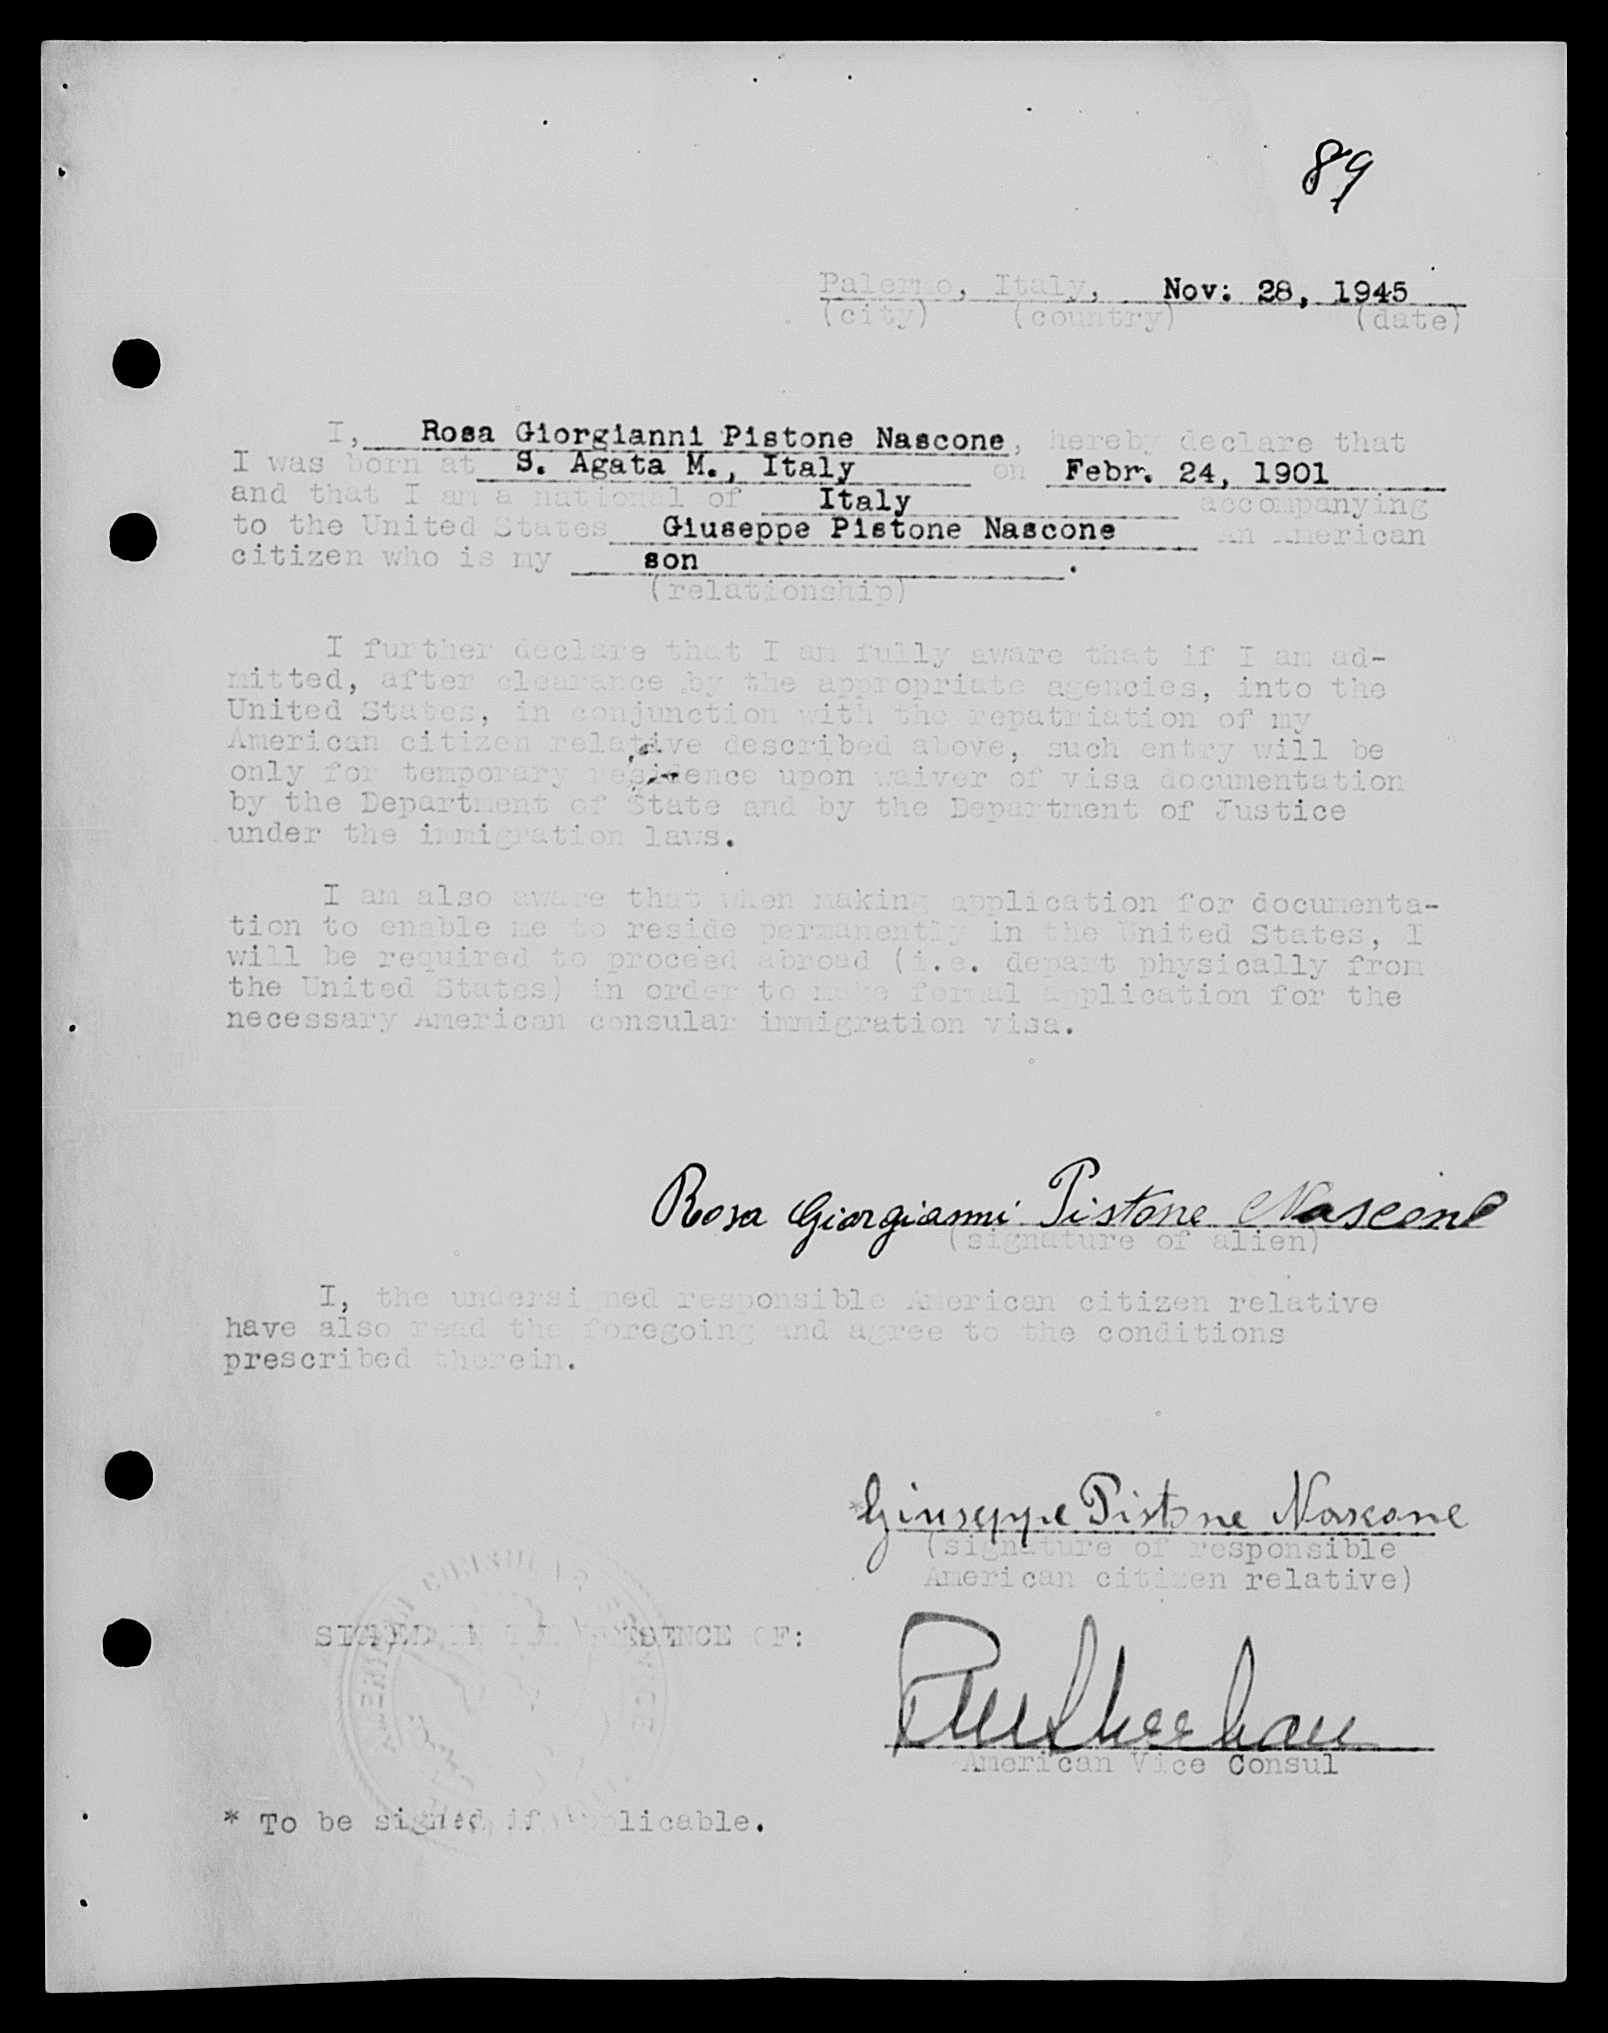 89
Palermo, Italy, Nov: 28, 1945
(city) (country) (date)
I, Rosa Giorgianni Pistone Nascone, hereby declare that
I was born at S. Agata M., Italy on Febr. 24, 1901
and that I am a national of Italy accompanying
to the United States Giuseppe Pistone Nascone an American
citizen who is my son.
(relationship)
I further declare that I am fully aware that if I am ad-
mitted, after clearance by the appropriate agencies, into the
United States, in conjunction with the repatriation of my
American citizen relative described above, such entry will be
only for temporary residence upon waiver of visa documentation
by the Department of State and by the Department of Justice
under the immigration laws.
I am also aware that when making application for documenta-
tion to enable me to reside permanently in the United States, I
will be required to proceed abroad (i.e. depart physically from
the United States) in order to make formal application for the
necessary American consular immigration visa.
Rosa Giorgianni Pistone Nascone
(signature of alien)
I, the undersigned responsible American citizen relative
have also read the foregoing and agree to the conditions
prescribed therein.
*Giuseppe Pistone Nascone
(signature of responsible
American citizen relative)
AMERICAN CONSULAR SERVICE
SIGNED IN THE PRESENCE OF:
American Vice Consul
* To be signed if applicable.